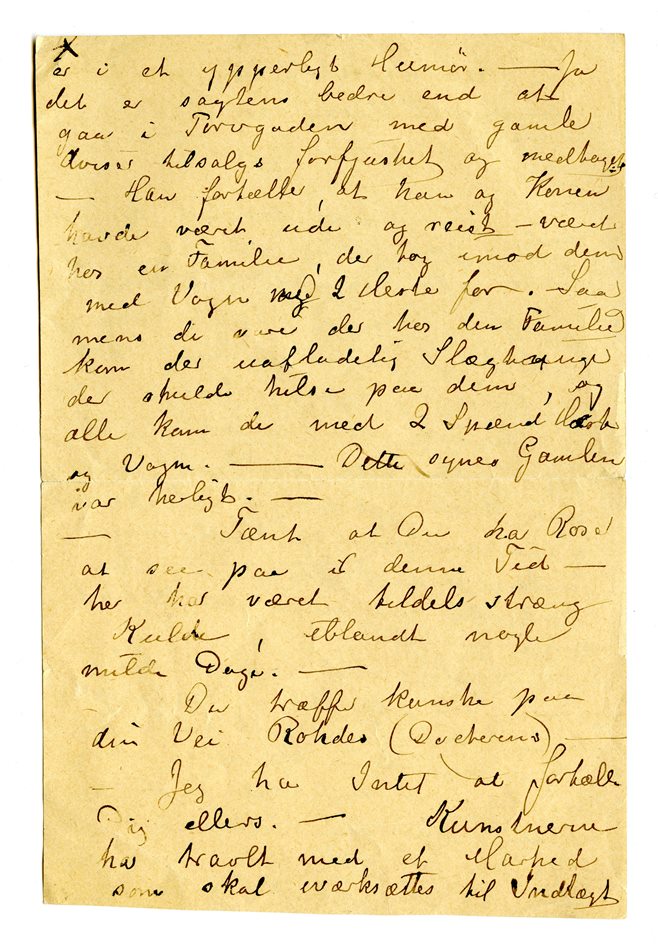 X
er i et ypperligt Humör. — Ja
det er sagtens bedre end at
gaa i Torvgaden med gamle
Aviser tilsalgs forfjusket og medtaget
— Han fortalte, at han og Konen
havde været ude og reist – været
hos en Familie, der tog imod dem
med Vogn med 2 Heste for. Saa
mens di vare der hos den Familie
kom der uafladelig Slægtninge
der skulde hilse paa dem, og
alle kom de med 2 Spænd Heste
og Vogn. — Dette synes Gamlen
var herligt. —
— Tænk at Du ha Roser
at see paa i denne Tid —
her har været tildels stræng
Kulde, iblandt nogle
milde Dage. —
Du træffe kanske paa
din Vei Rohdes (Docterens) —
— Jeg ha Intet at fortælle
Dig ellers. — Kunstnerne
ha travlt med et Marked
som skal iværksættes til Indtægt